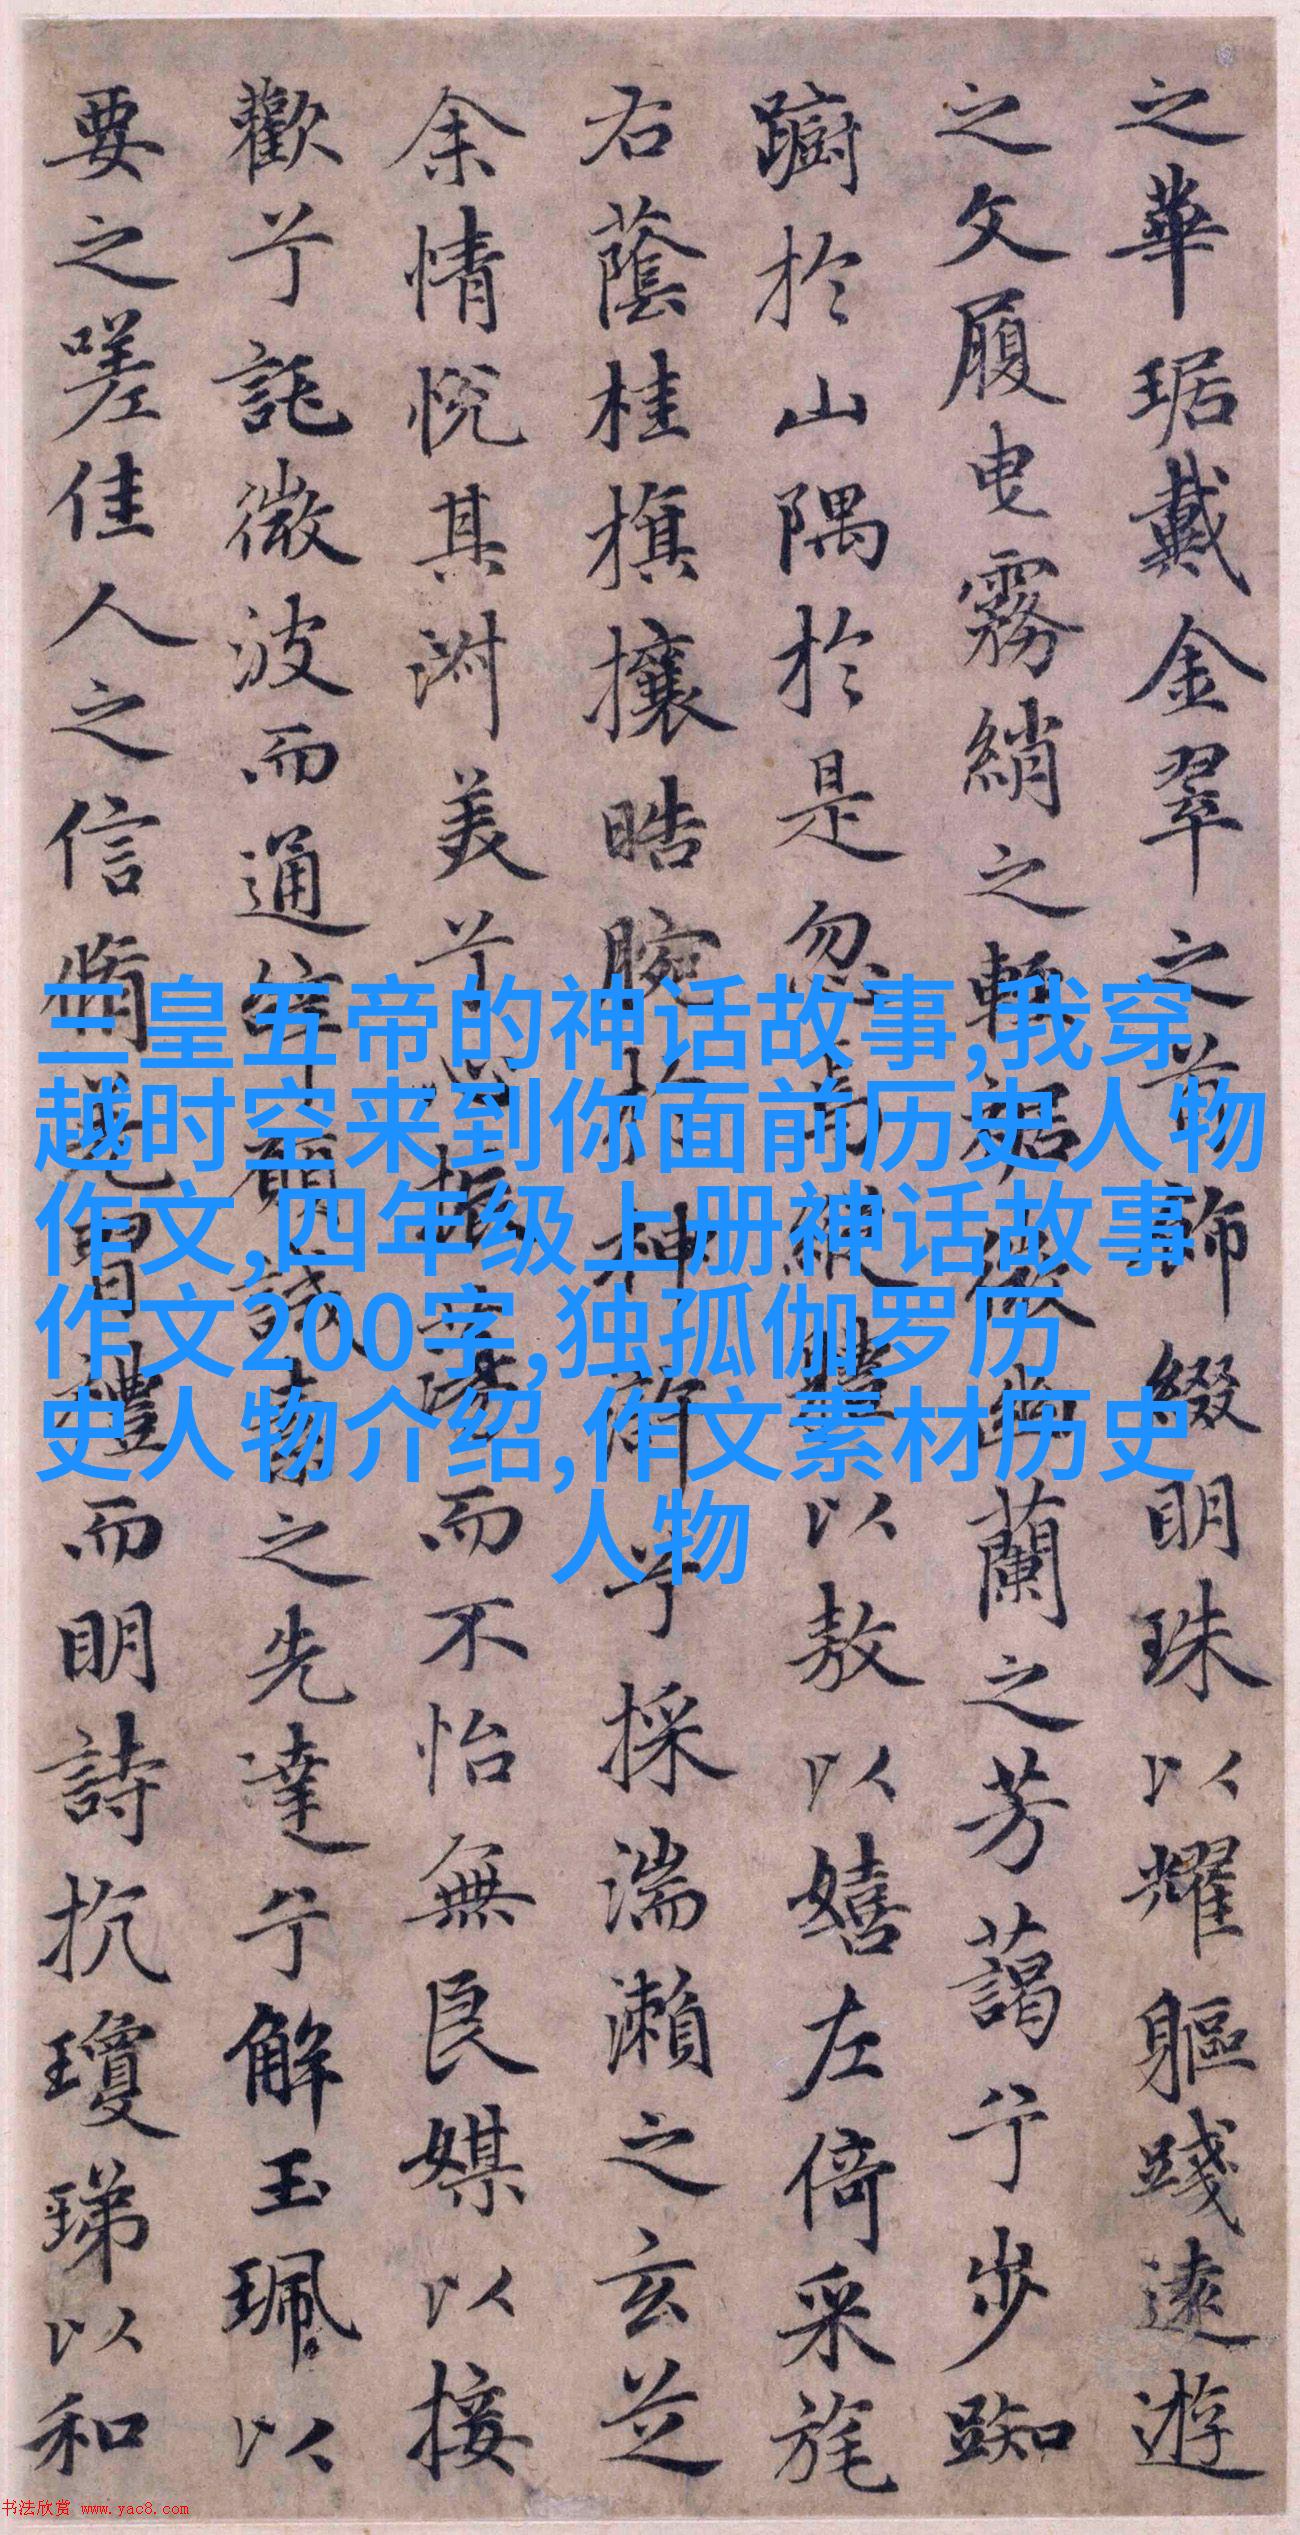 之華琚戴金翠之首飾綴明珠以耀軀踐遠遊
之文履曳霧綃之輕裾微幽蘭之芳藹兮步踟
躕於山隅於是忽焉縱體以敖以嬉左倚采旄
右蔭桂旗攘晧腕於神滸兮採湍瀨之玄芝
余情悅其淑美兮心振蕩而不怡無良媒以接
歡兮託微波而通辭願誠素之先達兮解玉珮以
要之嗟佳人之信脩羌習禮而明詩抗瓊珶以和
三皇五帝的神话故事,我穿
越时空来到你面前历史人物
作文,四年级上册神话故事
作文200字,独孤伽罗历
史人物介绍,作文素材历史
人物
书法欣赏 www.yac8.com